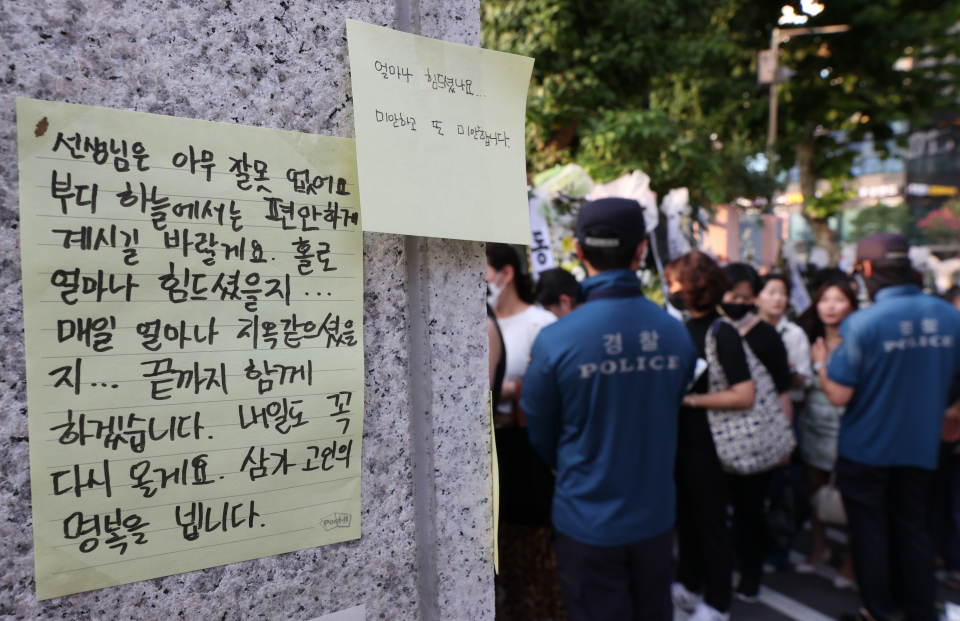 선생님은 아무 잘못 없어요
부디 하늘에서는 편안하게
계시길 바랄게요. 홀로
얼마나 힘드셨을지 ...
매일 얼마나 지옥같으셨을
지... 끝까지 함께
하겠습니다. 내일도 꼭
다시 올게요. 삼가 고인의
명복을 빕니다.
Post-it
얼마나 힘드셨나요...
미안하고 또 미안합니다.
경찰
POLICE
경찰
POLICE